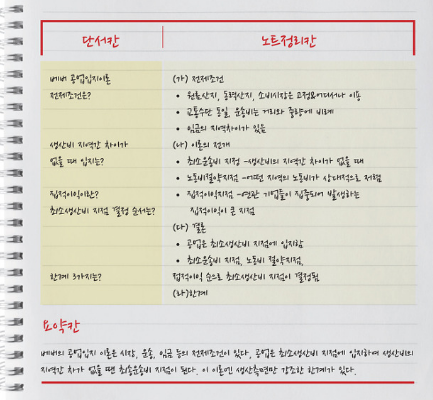 단서칸
노트정리칸
베버 공업입지이론
(가) 전제조건
전제조건은?
• 원료산지, 동력산지, 소비시장은 고정되어 있거나 이용
• 교통수단 동일, 운송비는 거리와 중량에 비례
• 임금의 지역차이가 있음
생산비 지역간 차이가
(나) 이론의 전개
없을 때 입지는?
• 최소운송비 지점 -생산비의 지역간 차이가 없을 때
• 노동비절약지점 -어떤 지역의 노동비가 상대적으로 저렴
집적이익이란?
• 집적이익지점 -연관 기업들이 집중되어 발생하는
최소생산비 지점 결정 순서는?
집적이익이 큰 지점
(다) 결론
• 공업은 최소생산비 지점에 입지함
• 최소운송비 지점, 노동비 절약지점,
한계 3가지는?
집적이익 순으로 최소생산비 지점이 결정됨
(라)한계
요약칸
베버의 공업입지 이론은 시장, 운송, 임금 등의 전제조건이 있다. 공업은 최소생산비 지점에 입지하며 생산비의
지역간 차가 없을 땐 최송운송비 지점이 된다. 이 이론엔 생산측면만 강조한 한계가 있다.